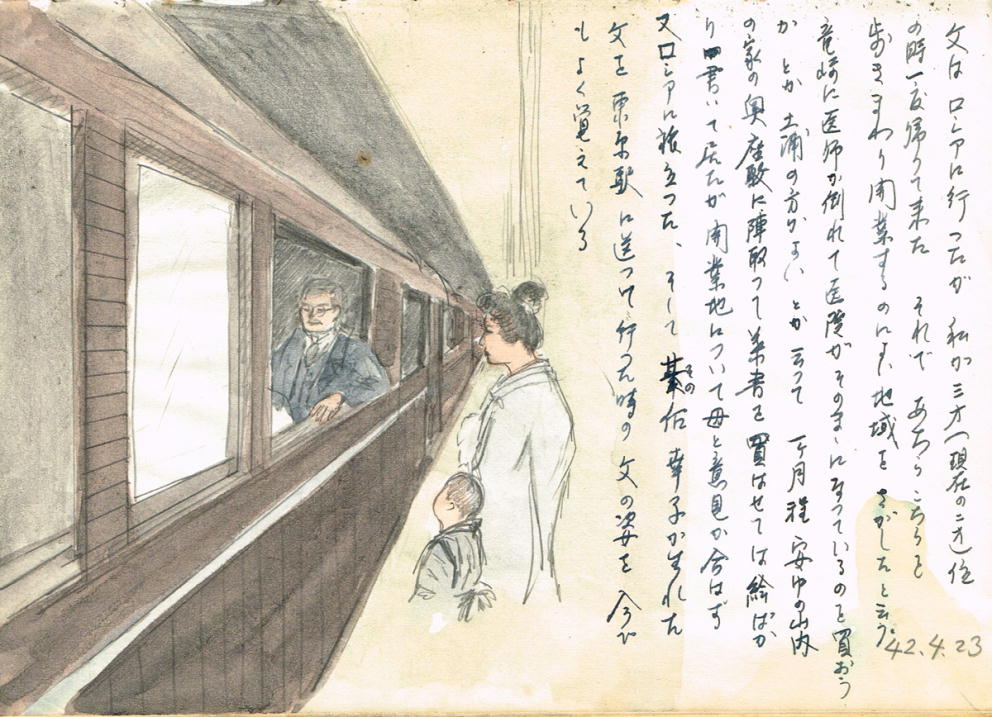 父はロシアに行ったが 私が三才(現在の二才)位
の時一度帰りて来た それで あちらこちらと
歩きまわり開業するのによい地域を さがしたと云う。
竜崎に医師が倒れて医院がそのまゝになっているのを買おう
か とか 土浦の方がよい とか 云って 一ヶ月程 安中の山内
の家の奥座敷に陣取って 葉書を買はせては絵ばか
り書いて居たが 開業地について母と意見が合はず
又ロシアに旅立った、そして 其后 幸子が生れた
その
父を東京駅に送って行った時の 父の姿を 今で
もよく覚えている
42.4.23